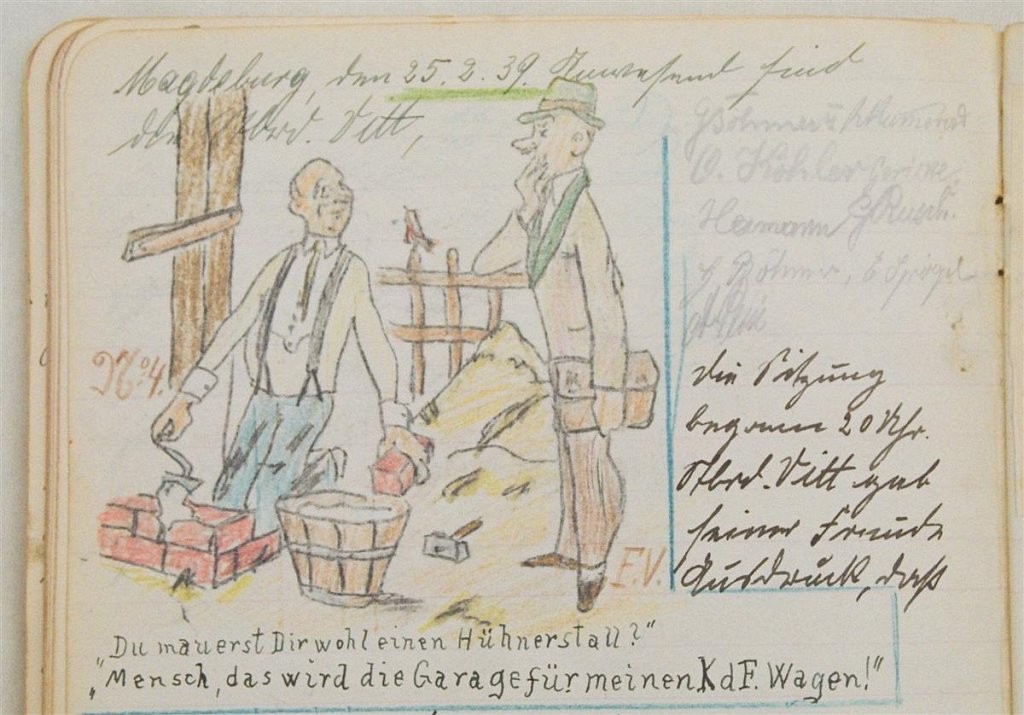 Magdeburg, den 25.2.39. Anwesend sind
die Stbrd. Vitt,
Böhmer
O. Köhler
Hermann
Böhmer,
No 4.
die Sitzung
begann 20 Uhr.
Stbrd. Vitt gab
seiner Freude
Ausdruck, daß
F.V.
Du mauerst Dir wohl einen Hühnerstall?"
"Mensch, das wird die Garage für meinen KdF. Wagen!"